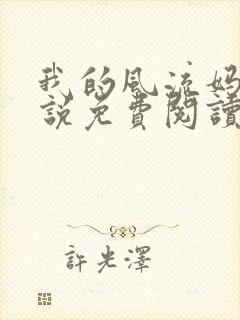 我的风流妈
說免費閱讀
許光澤